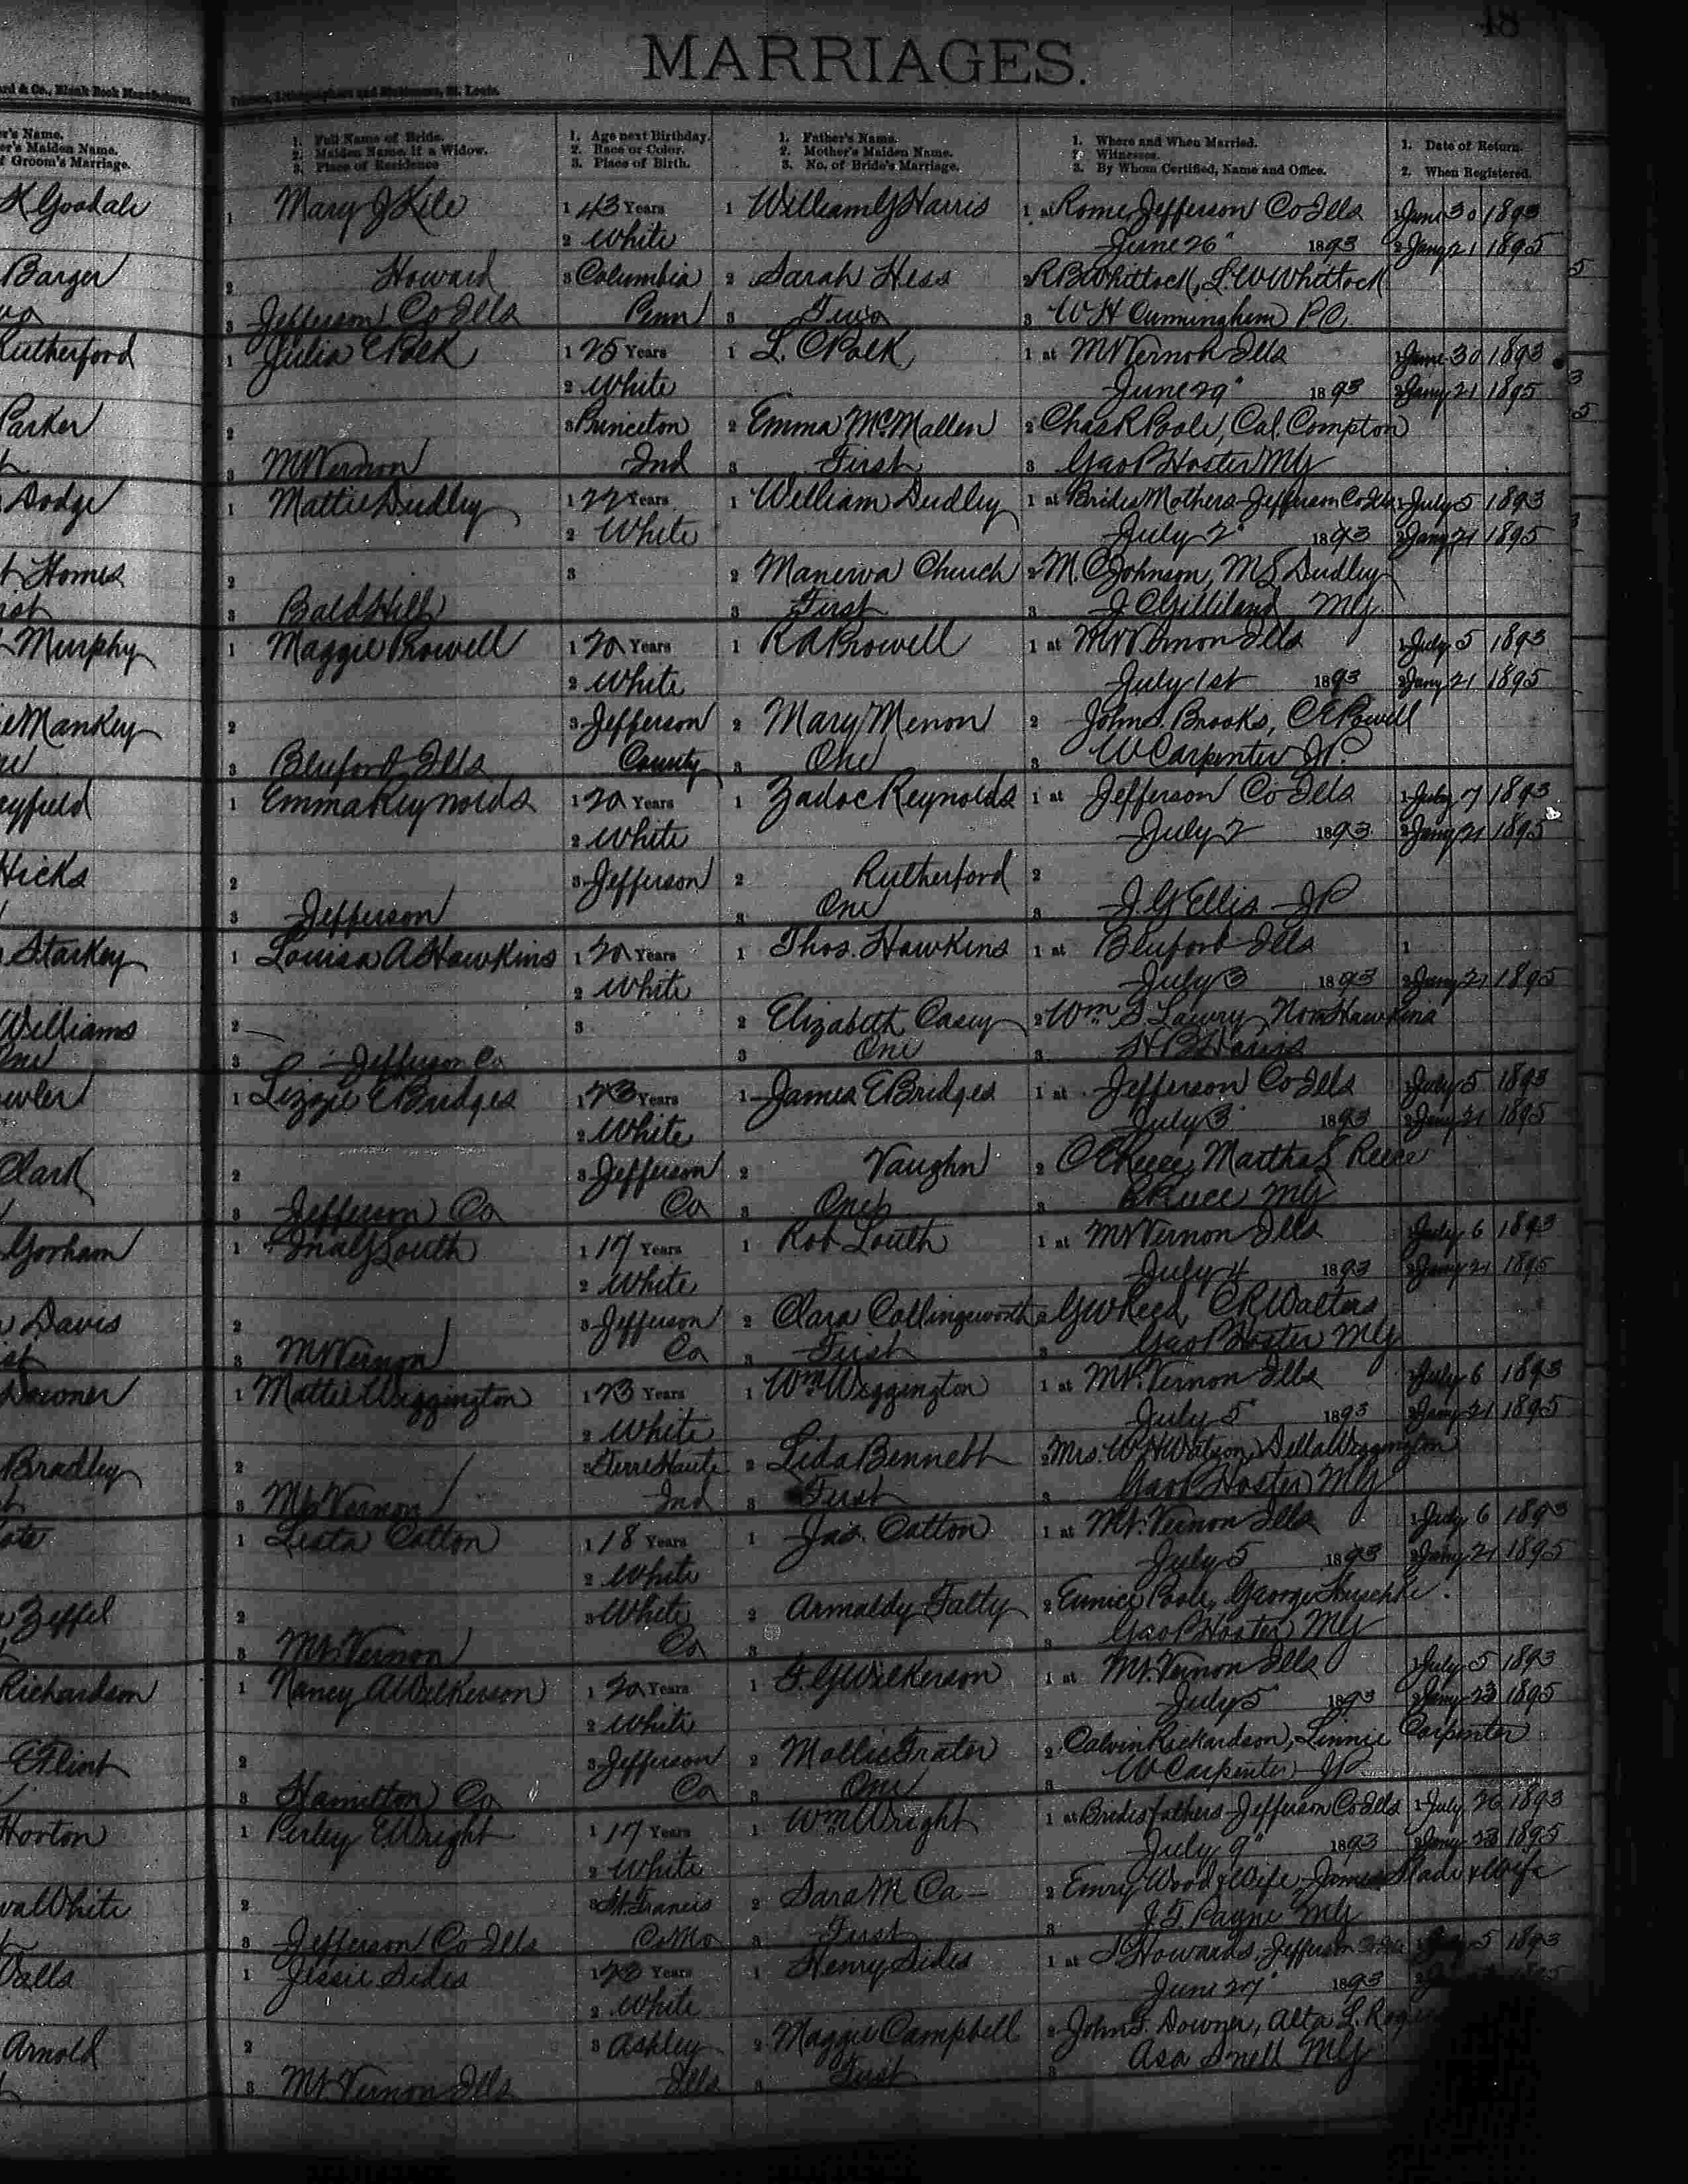 48
MARRIAGES.
rd & Co., Blank Book Manufacturers
Printers, Lithographers and Stationers, St. Louis.
er's Name.
er's Maiden Name.
f Groom's Marriage.
1. Full Name of Bride.
2. Maiden Name, if a Widow.
3. Place of Residence
1. Age next Birthday.
2. Race or Color.
3. Place of Birth.
1. Father's Name.
2. Mother's Maiden Name.
3. No. of Bride's Marriage.
1. Where and When Married.
2. Witnesses.
3. By Whom Certified, Name and Office.
1. Date of Return.
2. When Registered.
K Goodale
1 Mary J Kile 1 43 Years 1 William G Harris 1 at Rome Jefferson Co Ills 1 June 30 1893
2 White June 26" 1893 2 Jany 21 1895
Barger
2 Howard 3 Columbia 2 Sarah Hess 2 R B Whitlock, L. W Whitlock
3 Jefferson Co Ills Penn 3 Two 3 W H Cunningham P C
Rutherford
1 Julia C Polk 1 25 Years 1 L. C Polk 1 at Mt Vernon Ills 1 June 30 1893
2 White June 29" 1893 2 Jany 21 1895
Parker
2 3 Princeton 2 Emma McMallen 2 Chas R Poole, Cal. Compton
3 Mt Vernon Ind 3 First 3 Geo P Hoster MG
Dodge
1 Mattie Dudley 1 22 Years 1 William Dudley 1 at Brides Mothers Jefferson Co Ills 1 July 5 1893
2 White July 2" 1893 2 Jany 21 1895
t Homes
2 3 2 Manerva Church 2 M. C Johnson, M S Dudley
3 Bald Hill 3 First 3 J C Gilliland MG
Murphy
1 Maggie Prowell 1 20 Years 1 R A Prowell 1 at Mt Vernon Ills 1 July 5 1893
2 White July 1st 1893 2 Jany 21 1895
Mankey
2 3 Jefferson 2 Mary Menon 2 John S. Brooks, C E Powell
3 Bluford Ills County 3 One 3 W Carpenter J.P.
eyfield
1 Emma Reynolds 1 20 Years 1 Zadoc Reynolds 1 at Jefferson Co Ills 1 July 7 1893
2 White July 2 1893 2 Jany 21 1895
Hicks
2 3 Jefferson 2 Rutherford 2
3 Jefferson 3 One 3 J. G Ellis JP
Starkey
1 Louisa A Hawkins 1 20 Years 1 Thos. Hawkins 1 at Bluford Ills 1
2 White July 3 1893 2 Jany 21 1895
Williams
2 3 2 Elizabeth Casey 2 Wm S. Lawry, Hawkins
One
3 Jefferson Co 3 One 3 H B
ewler
1 Lizzie E Bridges 1 23 Years 1 James E Bridges 1 at Jefferson Co Ills 1 July 5 1893
2 White July 3 1893 2 Jany 21 1895
Clark
2 3 Jefferson 2 Vaughn 2 Martha S Reece
3 Jefferson Co Co 3 One 3 MG
Gorham
1 South 1 17 Years 1 Rob South 1 at Mt Vernon Ills 1 July 6 1893
2 White July 4 1893 2 Jany 21 1895
Davis
2 3 Jefferson 2 Clara Collingsworth 2 G W Reed, C R Walters
3 Mt Vernon Co 3 First 3 Geo P Hoster MG
1 Mattie Wiggington 1 23 Years 1 Wm Wiggington 1 at Mt. Vernon Ills 1 July 6 1893
2 White July 5" 1893 2 Jany 21 1895
Bradley
2 3 Terre Haute 2 Lida Bennett 2 Mrs. W H Watson, Della Wiggington
3 Mt Vernon Ind 3 First 3 Geo P Hoster MG
1 Lesta Cotton 1 18 Years 1 Jas. Cotton 1 at Mt. Vernon Ills 1 July 6 1893
2 White July 5 1893 2 Jany 21 1895
Zeffel
2 3 White 2 Armaldy Falty 2 Eunice Poole, George
3 Mt. Vernon Co 3 3 Geo P Hoster MG
Richardson
1 Nancy A Wilkerson 1 20 Years 1 G Wilkerson 1 at Mt. Vernon Ills 1 July 5 1893
2 White July 5 1893 2 Jany 23 1895
Flint
2 3 Jefferson 2 Mollie Frater 2 Calvin Richardson, Linnie Carpenter
3 Hamilton Co Co 3 One 3 W Carpenter JP
Horton
1 Perley E Wright 1 17 Years 1 Wm Wright 1 at Brides fathers Jefferson Co Ills 1 July 26 1893
2 White July 9" 1893 2 Jany 23 1895
White
2 3 St. Francis 2 Sara M Ca— 2 Emry Wood & Wife, James Slade & Wife
3 Jefferson Co Ills Co Mo 3 First 3 J. T. Payne MG
Jessie Sides 1 23 Years 1 Henry Sides 1 at Howards, Jefferson 5 1893
2 White June 27" 1893
Arnold
2 3 Ashley 2 Maggie Campbell 2 John S. Downer, Alta L. Rog
3 Mt. Vernon Ills Ills 3 First 3 Asa Snell MG